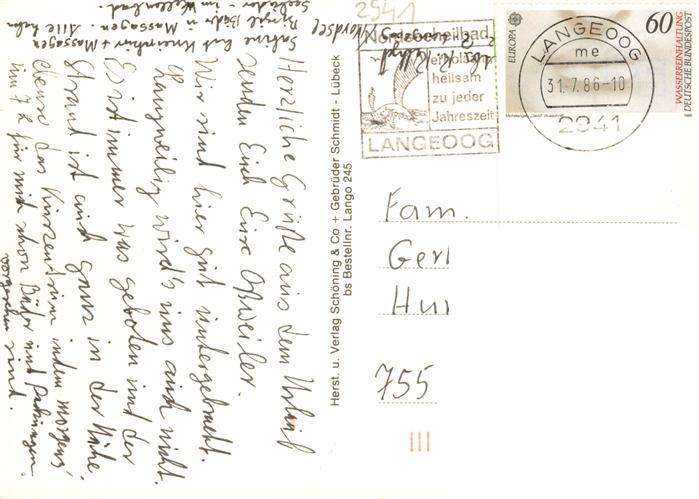 Herzliche Grüße aus dem Urlaub
senden Euch Eure Oßweiler.
Wir sind hier gut untergebracht.
Langweilig wird's uns auch nicht.
Es ist immer was geboten und der
Strand ist auch ganz in der Nähe
ebenso das Kurzentrum indem morgens
um 7 h für mich schon Bäder und Packungen
vorgesehen sind.
Sabine hat Kneippkur + Massagen
Herst. u. Verlag Schöning & Co + Gebrüder Schmidt - Lübeck
bs Bestellnr. Lango 245
2941
Nordseeheilbad
erholsam
heilsam
zu jeder
Jahreszeit
LANGEOOG
EUROPA
60
WASSERREINHALTUNG
DEUTSCHE BUNDESPOST
LANGEOOG
me
31.7.86-10
2941
Fam.
Gerl
Hui
755